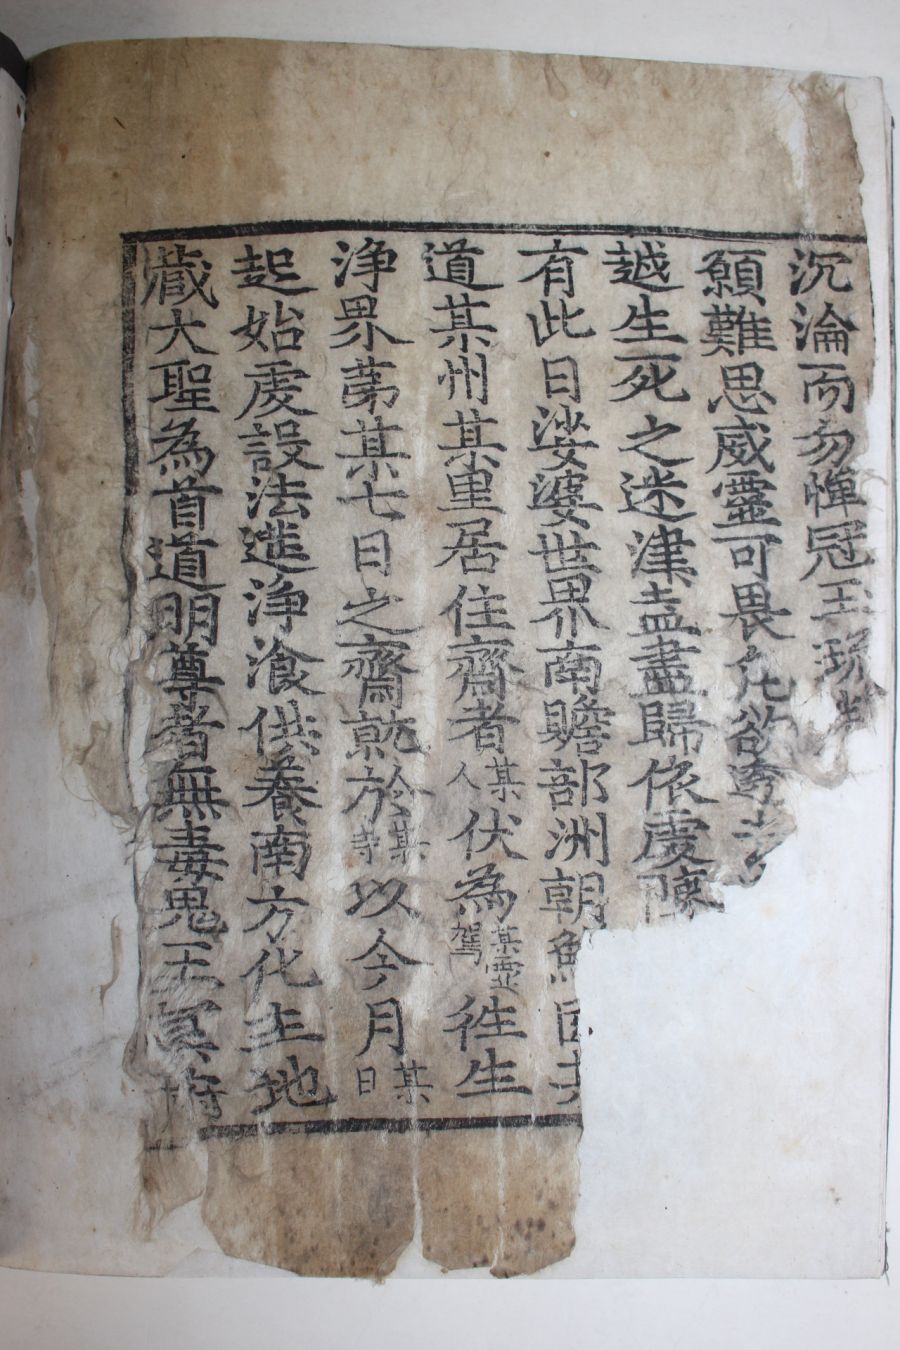 沉淪而勿憚冠玉
願難思威靈可畏凡欲
越生死之迷津盍盡歸依處
有此日娑婆世界南贍部洲朝鮮国
道某州某里居住齋者某人伏為某靈駕徃生
淨界苐某七日之齋就於某寺以今月某日
起始處設法筵淨飡供養南方化主地
蔵大聖為首道明尊者無毒鬼王冥